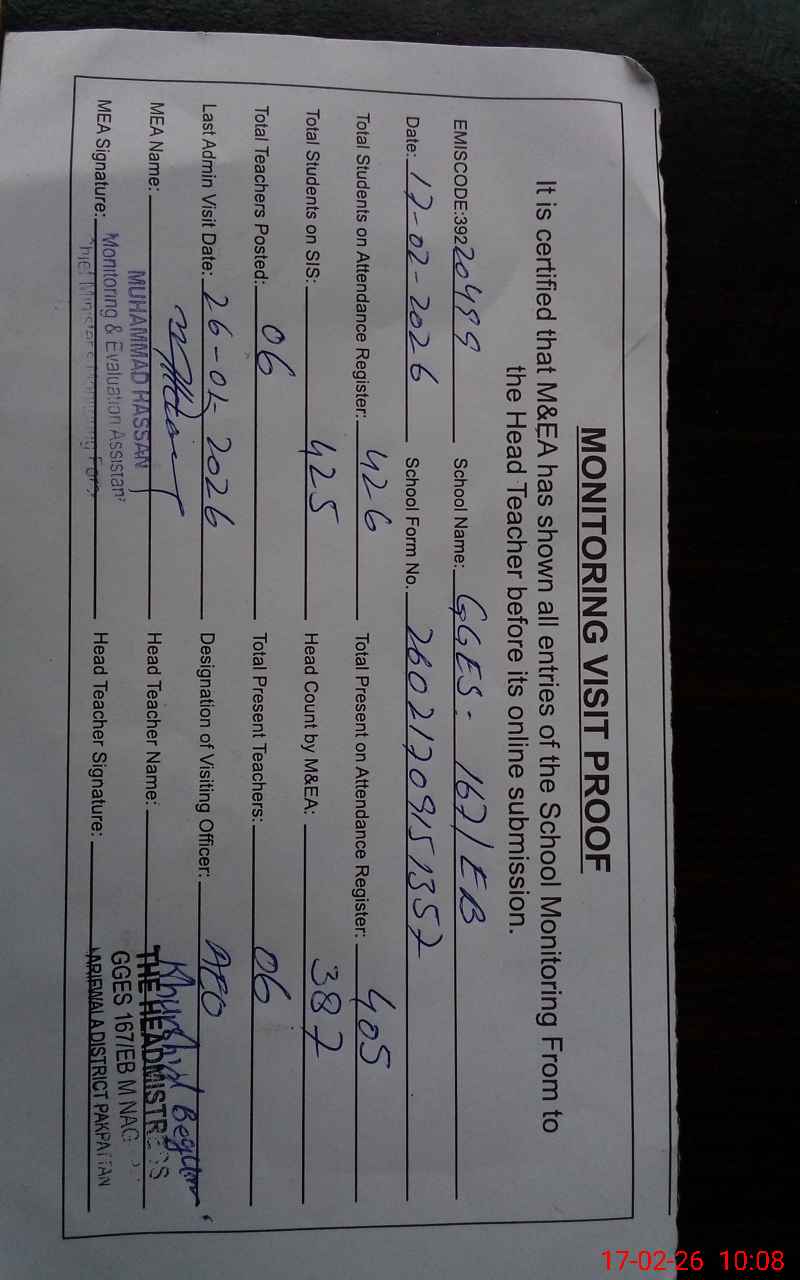 MONITORING VISIT PROOF
It is certified that M&EA has shown all entries of the School Monitoring From to
the Head Teacher before its online submission.
EMISCODE:39220499 School Name: GGES- 167/EB
Date: 17-02-2026 School Form No. 26021709151357
Total Students on Attendance Register: 426 Total Present on Attendance Register: 405
Total Students on SIS: 425 Head Count by M&EA: 387
Total Teachers Posted: 06 Total Present Teachers: 06
Last Admin Visit Date: 26-01-2026 Designation of Visiting Officer: AEO
MEA Name: Head Teacher Name: Khurshid Begum
MUHAMMAD HASSAN THE HEADMISTRESS
Monitoring & Evaluation Assistant GGES 167/EB M NAG
MEA Signature: Head Teacher Signature: ARIEWALA DISTRICT PAKPATTAN
Chief Minister's Monitoring Force
17-02-26 10:08